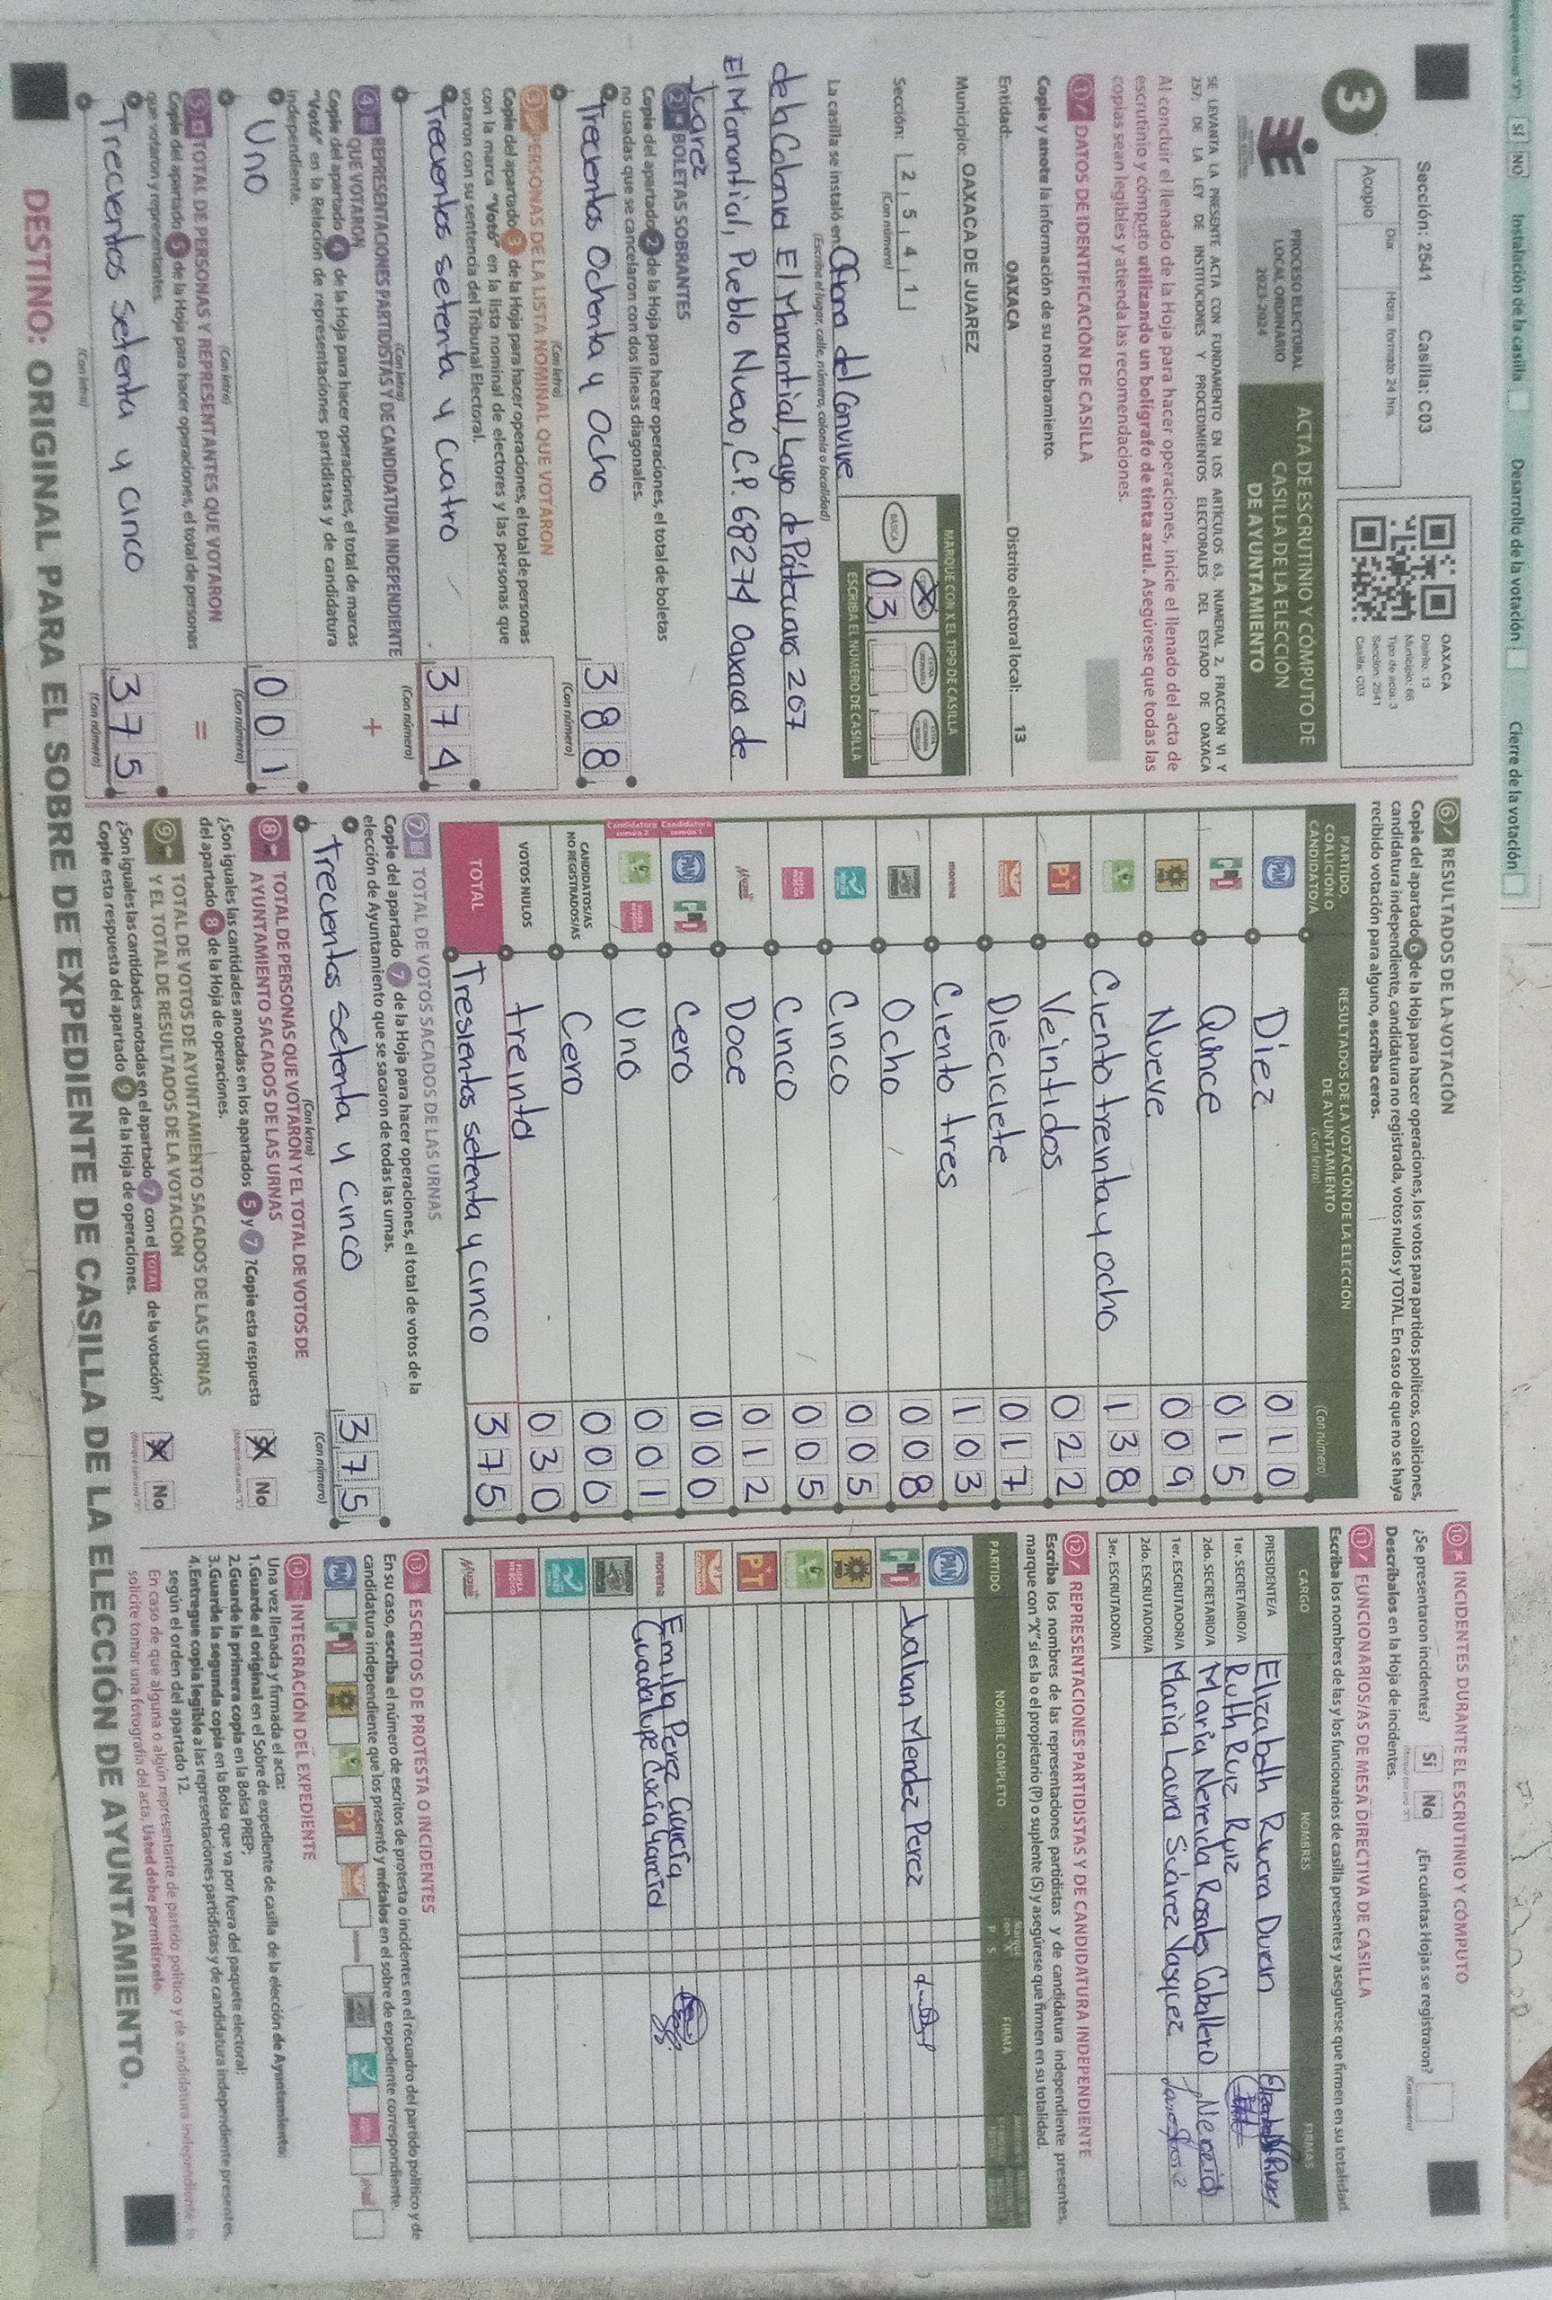 SÍ NO Instalación de la casilla Desarrollo de la votación Cierre de la votación
Sección: 2541 Casilla: C03
Día Hora formato 24 hrs.
Acopio
3
OAXACA
Distrito: 13
Municipio: 66
Tipo de acta: 3
Sección: 2541
Casilla: C03
PROCESO ELECTORAL
LOCAL ORDINARIO
2023-2024
ACTA DE ESCRUTINIO Y CÓMPUTO DE
CASILLA DE LA ELECCIÓN
DE AYUNTAMIENTO
SE LEVANTA LA PRESENTE ACTA CON FUNDAMENTO EN LOS ARTÍCULOS 63, NUMERAL 2, FRACCIÓN VI Y
257; DE LA LEY DE INSTITUCIONES Y PROCEDIMIENTOS ELECTORALES DEL ESTADO DE OAXACA
Al concluir el llenado de la Hoja para hacer operaciones, inicie el llenado del acta de
escrutinio y cómputo utilizando un bolígrafo de tinta azul. Asegúrese que todas las
copias sean legibles y atienda las recomendaciones.
1 DATOS DE IDENTIFICACIÓN DE CASILLA
Copie y anote la información de su nombramiento.
Entidad: OAXACA Distrito electoral local: 13
Municipio: OAXACA DE JUAREZ
Sección: 2 5 4 1
(Con número)
MARQUE CON X EL TIPO DE CASILLA
BÁSICA
03
ESCRIBA EL NÚMERO DE CASILLA
La casilla se instaló en:
(Escriba el lugar, calle, número, colonia o localidad)
de la Colonia El Manantial, Lago de Pátzcuaro 207
El Manantial, Pueblo Nuevo, C.P. 68274 Oaxaca de
Juarez
2 BOLETAS SOBRANTES
Copie del apartado 2 de la Hoja para hacer operaciones, el total de boletas
no usadas que se cancelaron con dos líneas diagonales.
Trecientos Ochenta y Ocho 388
(Con letra) (Con número)
3 PERSONAS DE LA LISTA NOMINAL QUE VOTARON
Copie del apartado 3 de la Hoja para hacer operaciones, el total de personas
con la marca "Votó" en la lista nominal de electores y las personas que
votaron con su sentencia del Tribunal Electoral.
Trecientos setenta y cuatro 374
(Con letra) (Con número)
4 REPRESENTACIONES PARTIDISTAS Y DE CANDIDATURA INDEPENDIENTE
QUE VOTARON +
Copie del apartado 4 de la Hoja para hacer operaciones, el total de marcas
"Votó" en la Relación de representaciones partidistas y de candidatura
independiente.
Uno 001
(Con letra) (Con número)
5 TOTAL DE PERSONAS Y REPRESENTANTES QUE VOTARON =
Copie del apartado 5 de la Hoja para hacer operaciones, el total de personas
que votaron y representantes.
Trecientos setenta y cinco 375
(Con letra) (Con número)
6 RESULTADOS DE LA VOTACIÓN
Copie del apartado 6 de la Hoja para hacer operaciones, los votos para partidos políticos, coaliciones,
candidatura independiente, candidatura no registrada, votos nulos y TOTAL. En caso de que no se haya
recibido votación para alguno, escriba ceros.
PARTIDO, COALICION O CANDIDATO/A RESULTADOS DE LA VOTACIÓN DE LA ELECCIÓN DE AYUNTAMIENTO (Con letra) (Con número)
PAN Diez 010
PRI Quince 015
Nueve 009
Ciento treinta y ocho 138
PT Veintidos 022
Diecisiete 017
morena Ciento tres 103
Ocho 008
Cinco 005
FUERZA POR MÉXICO Cinco 005
Doce 012
Candidatura común 1 PAN PRI Cero 000
Candidatura común 2 Uno 001
CANDIDATOS/AS NO REGISTRADOS/AS Cero 000
VOTOS NULOS treinta 030
TOTAL Tresientos setenta y cinco 375
7 TOTAL DE VOTOS SACADOS DE LAS URNAS
Copie del apartado 7 de la Hoja para hacer operaciones, el total de votos de la
elección de Ayuntamiento que se sacaron de todas las urnas.
Trecientos setenta y cinco 375
(Con letra) (Con número)
8 TOTAL DE PERSONAS QUE VOTARON Y EL TOTAL DE VOTOS DE
AYUNTAMIENTO SACADOS DE LAS URNAS
¿Son iguales las cantidades anotadas en los apartados 5 y 7 ? Copie esta respuesta
del apartado 8 de la Hoja de operaciones. No
9 TOTAL DE VOTOS DE AYUNTAMIENTO SACADOS DE LAS URNAS
Y EL TOTAL DE RESULTADOS DE LA VOTACIÓN
¿Son iguales las cantidades anotadas en el apartado 7 con el TOTAL de la votación?
Copie esta respuesta del apartado 9 de la Hoja de operaciones. No
10 INCIDENTES DURANTE EL ESCRUTINIO Y CÓMPUTO
¿Se presentaron incidentes? Sí No ¿En cuántas Hojas se registraron?
Descríbalos en la Hoja de incidentes.
11 FUNCIONARIOS/AS DE MESA DIRECTIVA DE CASILLA
Escriba los nombres de las y los funcionarios de casilla presentes y asegúrese que firmen en su totalidad.
CARGO NOMBRES FIRMAS
PRESIDENTE/A Elizabeth Rivera Duran
1er. SECRETARIO/A Ruth Ruiz Ruiz
2do. SECRETARIO/A María Nereida Rosales Caballero
1er. ESCRUTADOR/A Maria Laura Suárez Vasquez
2do. ESCRUTADOR/A
3er. ESCRUTADOR/A
12 REPRESENTACIONES PARTIDISTAS Y DE CANDIDATURA INDEPENDIENTE
Escriba los nombres de las representaciones partidistas y de candidatura independiente presentes,
marque con "X" si es la o el propietario (P) o suplente (S) y asegúrese que firmen en su totalidad.
PARTIDO NOMBRE COMPLETO P S FIRMA
PAN
PRI Julian Mendez Perez
PT
morena Emilia Perez García
Guadalupe
13 ESCRITOS DE PROTESTA O INCIDENTES
En su caso, escriba el número de escritos de protesta o incidentes en el recuadro del partido político y de
candidatura independiente que los presentó y métalos en el sobre de expediente correspondiente.
14 INTEGRACIÓN DEL EXPEDIENTE
Una vez llenada y firmada el acta:
1.Guarde el original en el Sobre de expediente de casilla de la elección de Ayuntamiento;
2.Guarde la primera copia en la Bolsa PREP;
3.Guarde la segunda copia en la Bolsa que va por fuera del paquete electoral;
4.Entregue copia legible a las representaciones partidistas y de candidatura independiente presentes,
según el orden del apartado 12.
En caso de que alguna o algún representante de partido político y de candidatura independiente, le
solicite tomar una fotografía del acta, Usted debe permitírselo.
DESTINO: ORIGINAL PARA EL SOBRE DE EXPEDIENTE DE CASILLA DE LA ELECCIÓN DE AYUNTAMIENTO.